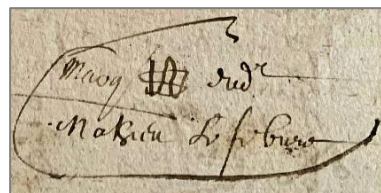 Marq dud^t
Mathieu Lefebure